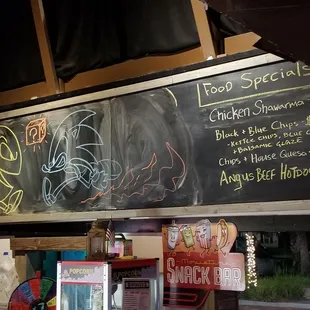 Food Specials
Chicken Shawarma
Black + Blue Chips -
- Kettle Chips, Blue C
+ Balsamic Glaze
Chips + House Queso
Angus Beef Hotdo
?
SNACK BAR
POPCORN
POPCORN